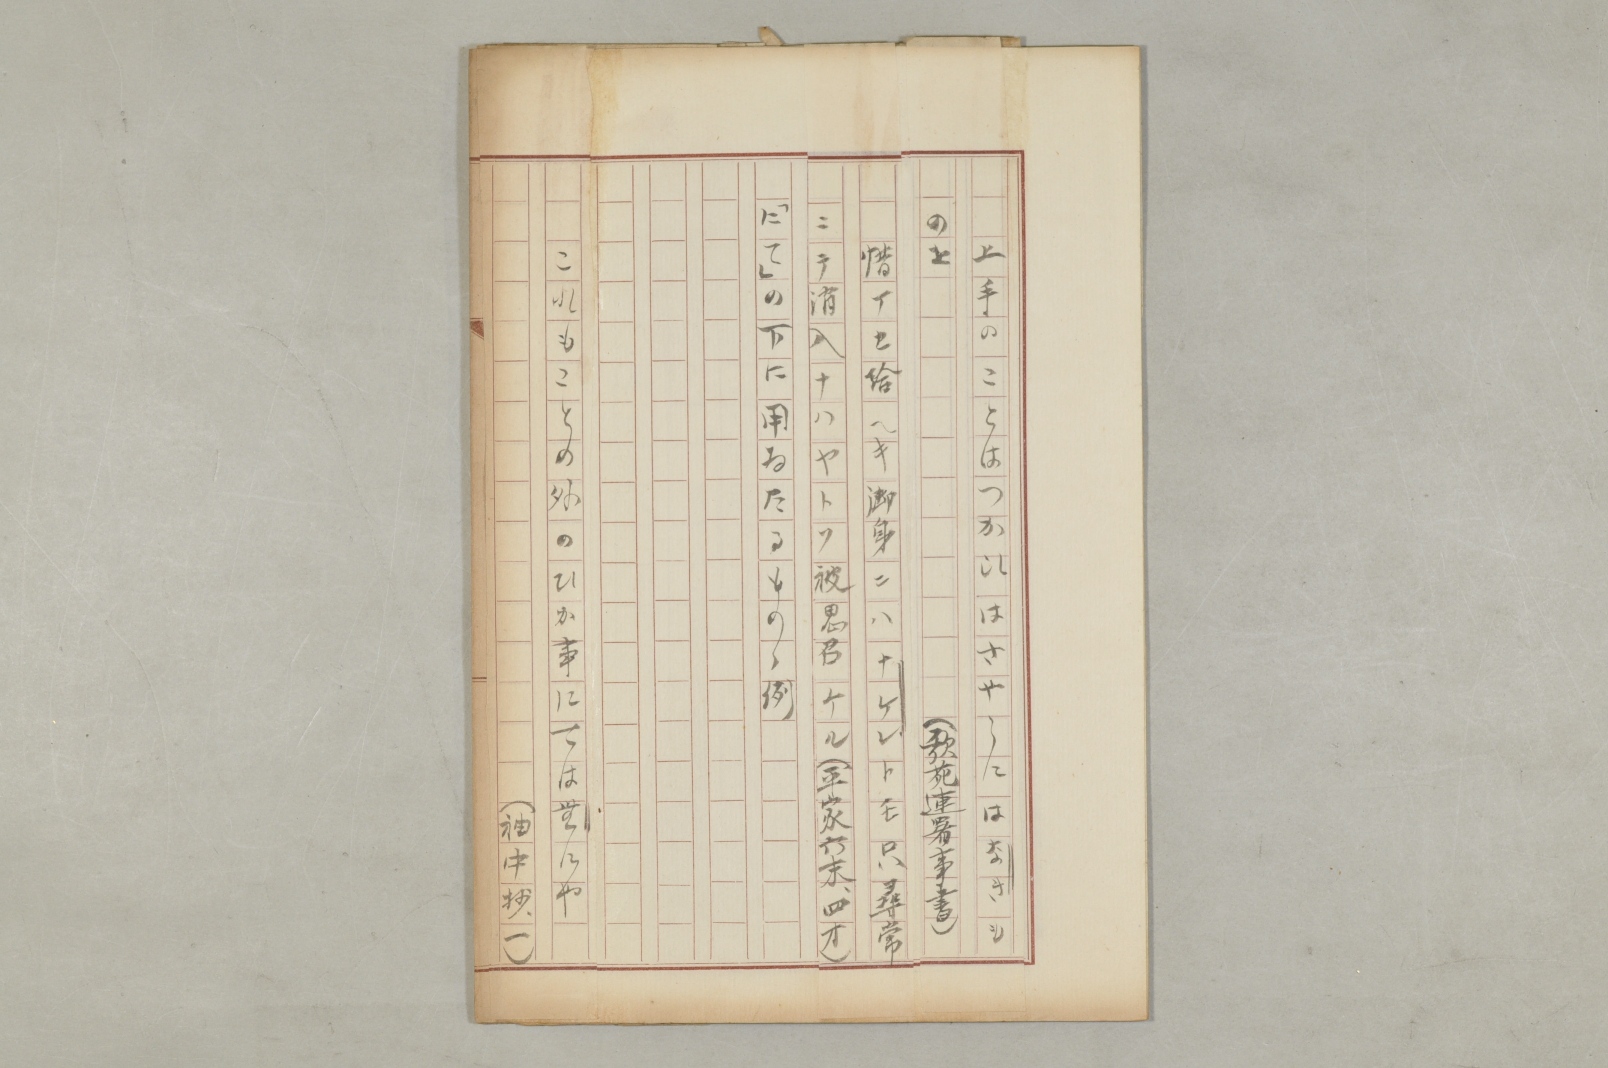 上手のことはつかひはさやうにはなきも
のと
(歌苑連署事書)
惜マセ給ヘキ御身ニハナケレトモ只尋常
ニテ消入ナハヤトソ被思召ケル(平家六末、四オ)
「にて」の下に用ゐたるものゝ例
これもことの外のひか事にては無にや
(袖中抄、一)